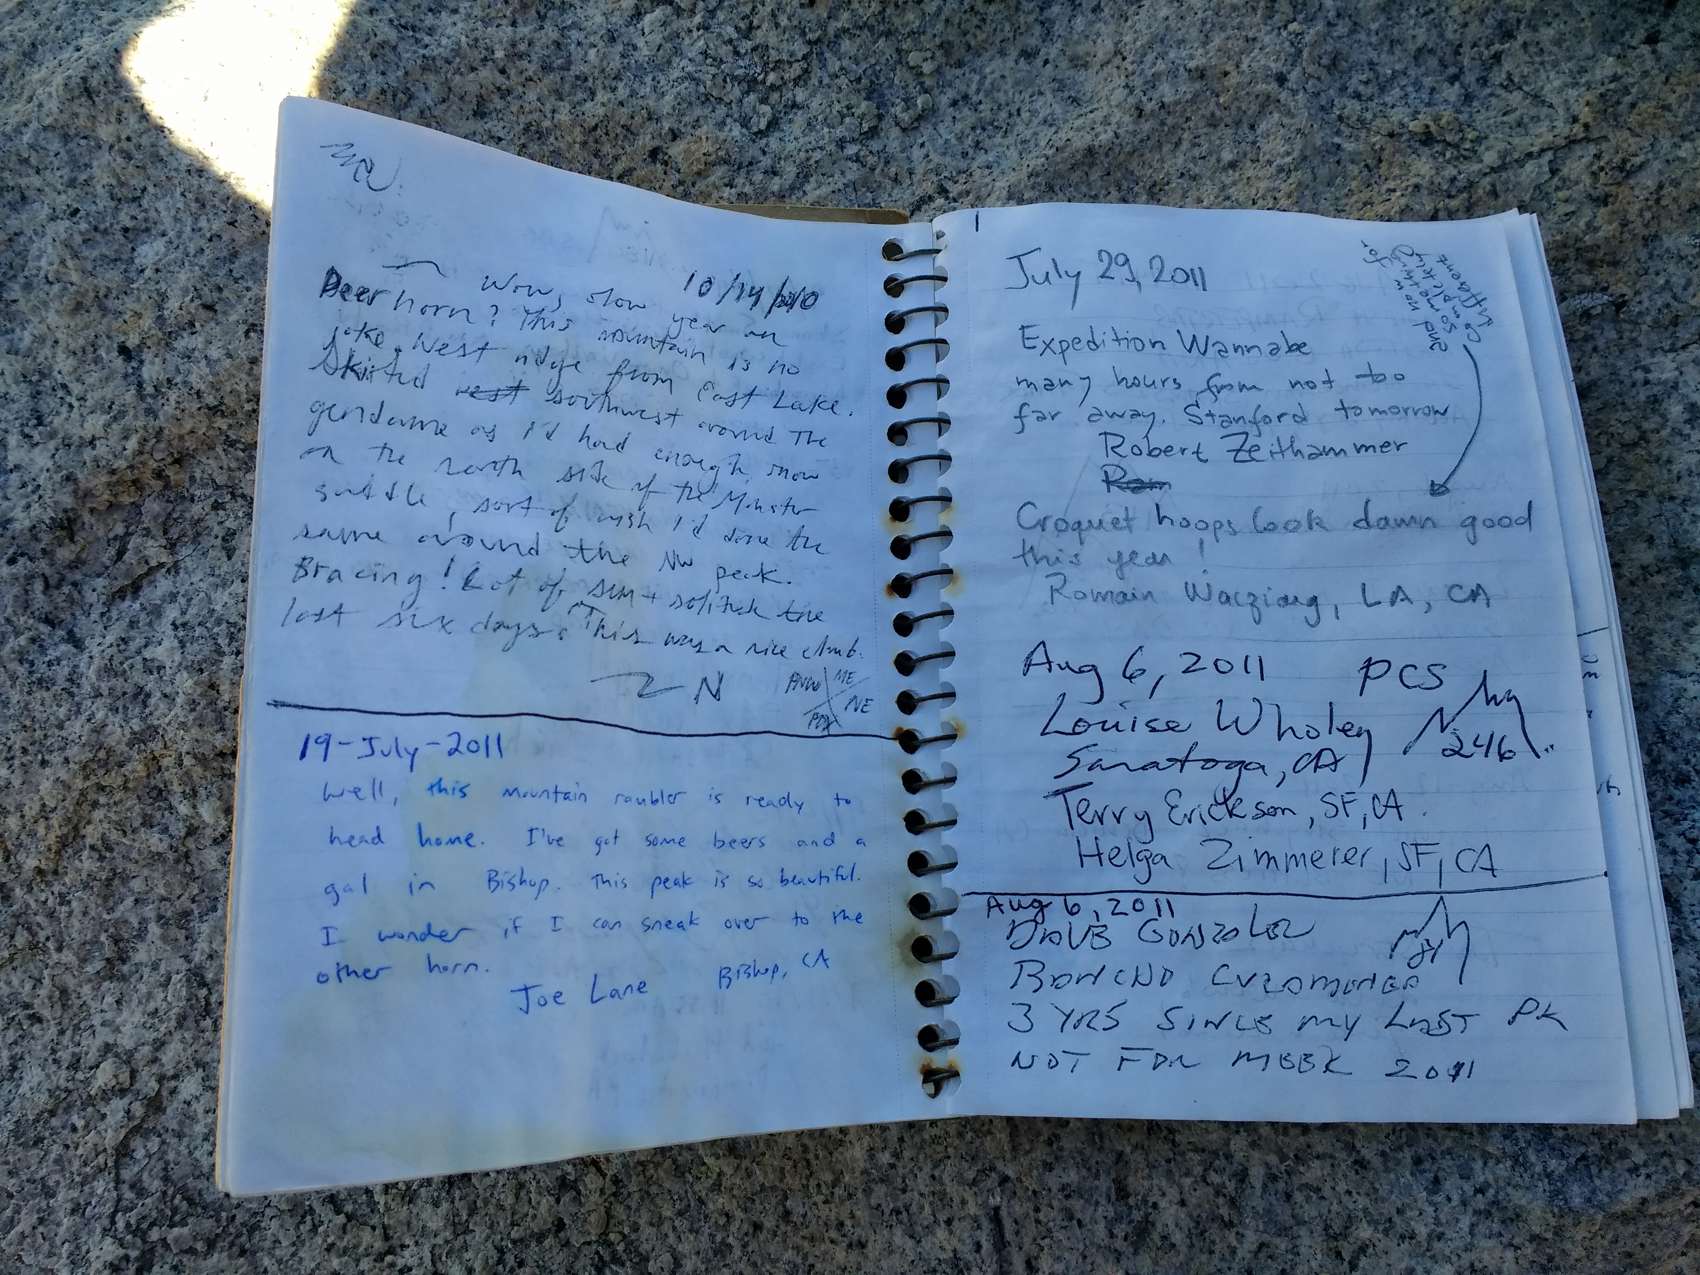 Wow, slow year on 10/14/2010
Deerhorn? This mountain is no
joke. West ridge from East Lake.
Skirted west southwest around the
gendarme as I'd had enough snow
on the north side of the Monster
saddle, sort of wish I'd done the
same around the NW peak.
Bracing! Lot of sun + solitude the
last six days. This was a nice climb.
NE
NE
19-July-2011
Well, this mountain rambler is ready to
head home. I've got some beers and a
gal in Bishop. This peak is so beautiful.
I wonder if I can sneak over to the
other horn.
Joe Lane Bishop, CA
1
July 29, 2011
and now
for something
completely
different
Expedition Wannabe
many hours from not too
far away. Stanford tomorrow
Robert Zeithammer
Rom
Croquet hoops look damn good
this year!
Romain Wacziarg, LA, CA
Aug 6, 2011 PCS
Louise Wholey
246
Saratoga, CA
Terry Erickson, SF, CA.
Helga Zimmerer, SF, CA
Aug 6, 2011
DAVE GONZALEZ
RANCHO CUCAMONGA
3 YRS SINCE MY LAST PK
NOT FOR MEEK 2011